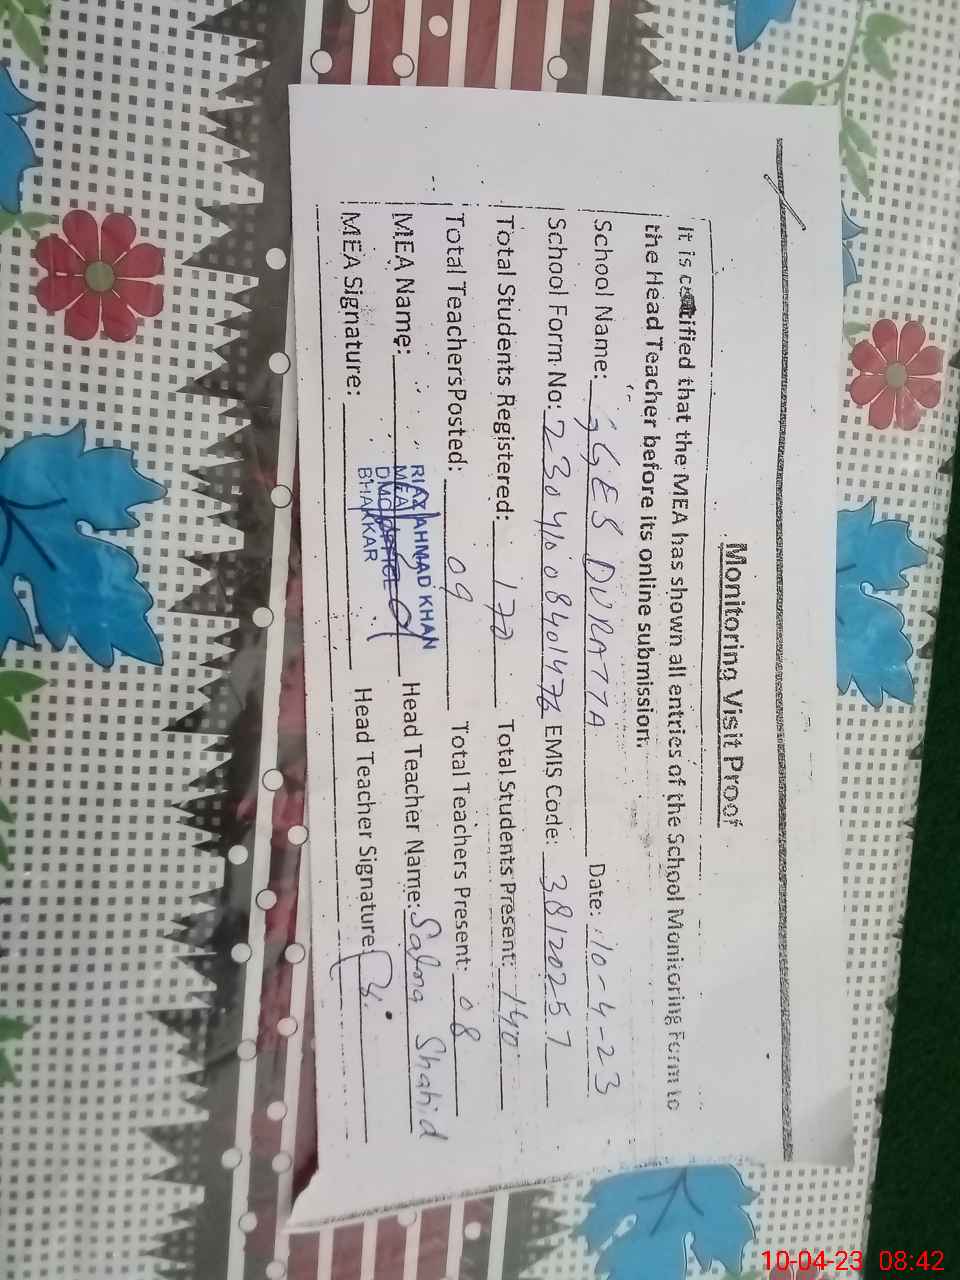 Monitoring Visit Proof
It is certified that the MEA has shown all entries of the School Monitoring Form to
the Head Teacher before its online submission.
School Name: GGES DURATTA Date: 10-4-23
School Form No: EMIS Code: 38120257
Total Students Registered: Total Students Present: 140
Total Teachers Posted: 09 Total Teachers Present: 08
MEA Name: RIAZ AHMAD KHAN Head Teacher Name: Salma Shahid
MEA
DMO OFFICE
BHAKKAR
MEA Signature: Head Teacher Signature:
10-04-23 08:42